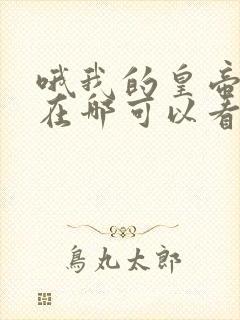 哦我的皇帝
在哪可以看
鳥丸太郎